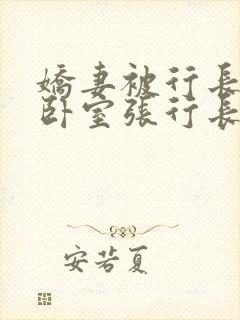 嬌妻被行長
卧室張行長
安若夏